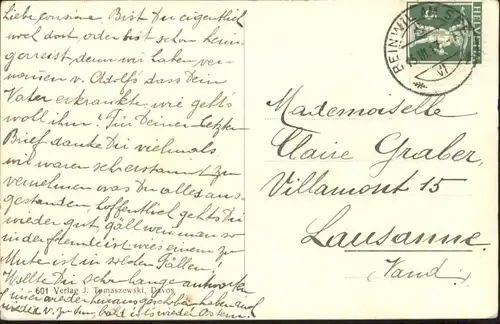 Liebe cousine Bist Du eigentlich
noch dort oder bist schon heim-
gereist, denn wir haben ver-
nommen v. Adolf's dass Dein
Vater erkrankte, wie geht's
wohl ihm? Für Deinen letzten
Brief danke Dir vielmals
wir waren sehr erstaunt zu
vernehmen was Du alles aus-
gestanden, hoffentlich geht's Dir
wieder gut, gäll wenn man so
in der fremde ist wie's einem zu
Mute ist in solchen Fällen!
Wollte Dir schon lange antworten
immer wieder hinausgeschoben haben auf
wieder v. zu tun, bald ist's wieder Ostern.
601 Verlag J. Tomaszewski, Davos
REINWIL AM SEE
VI
HELVETIA
Mademoiselle
Claire Graber,
Villamont 15
Lausanne
(Vaud).